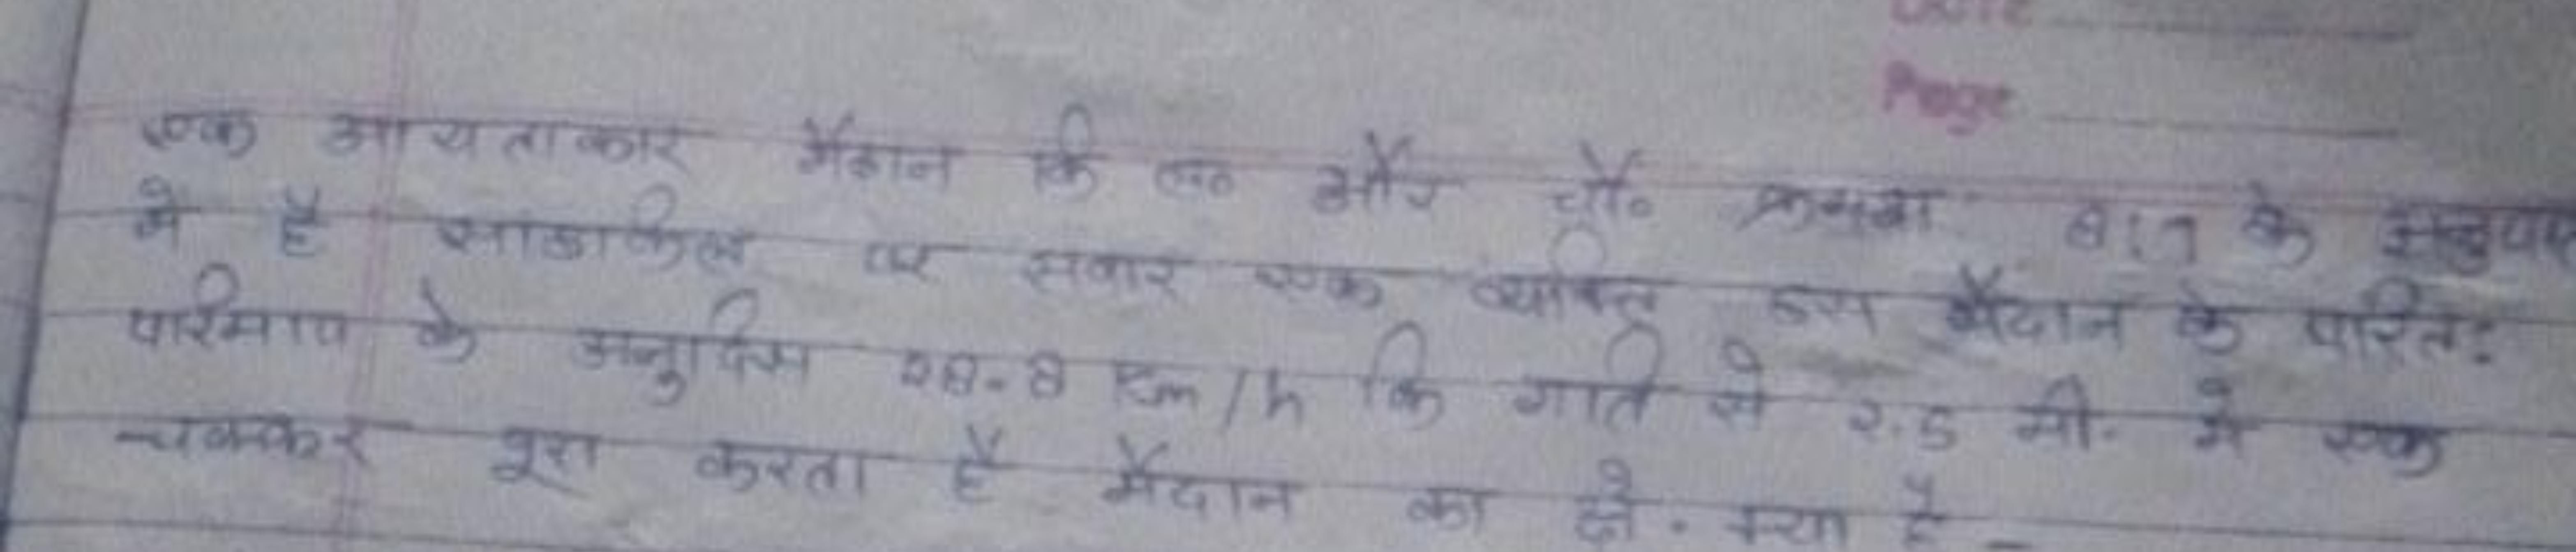 Date
Page
एक आयताकार मैदान कि ल० और चौ० क्रमशः 8:7 के अनुपात
मे है साइकिल पर सवार एक व्यक्ति इस मैदान के परित:
परिमाप के अनुदिस 28.8 Km/h कि गति से 2.5 मी. मे एक
चक्कर पूरा करता है मैदान का क्षे. क्या है -